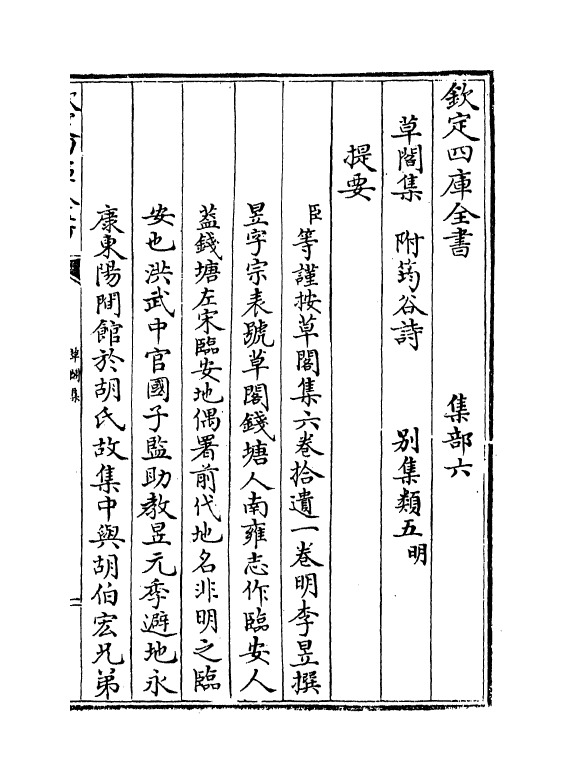 欽定四庫全書　集部六
草閣集　附筠谷詩　别集類五明
提要
臣等謹按草閣集六卷拾遺一卷明李昱撰
昱字宗表號草閣錢塘人南雍志作臨安人
葢錢塘在宋臨安地偶署前代地名非明之臨
安也洪武中官國子監助教昱元季避地永
康東陽間館於胡氏故集中與胡伯宏兄弟